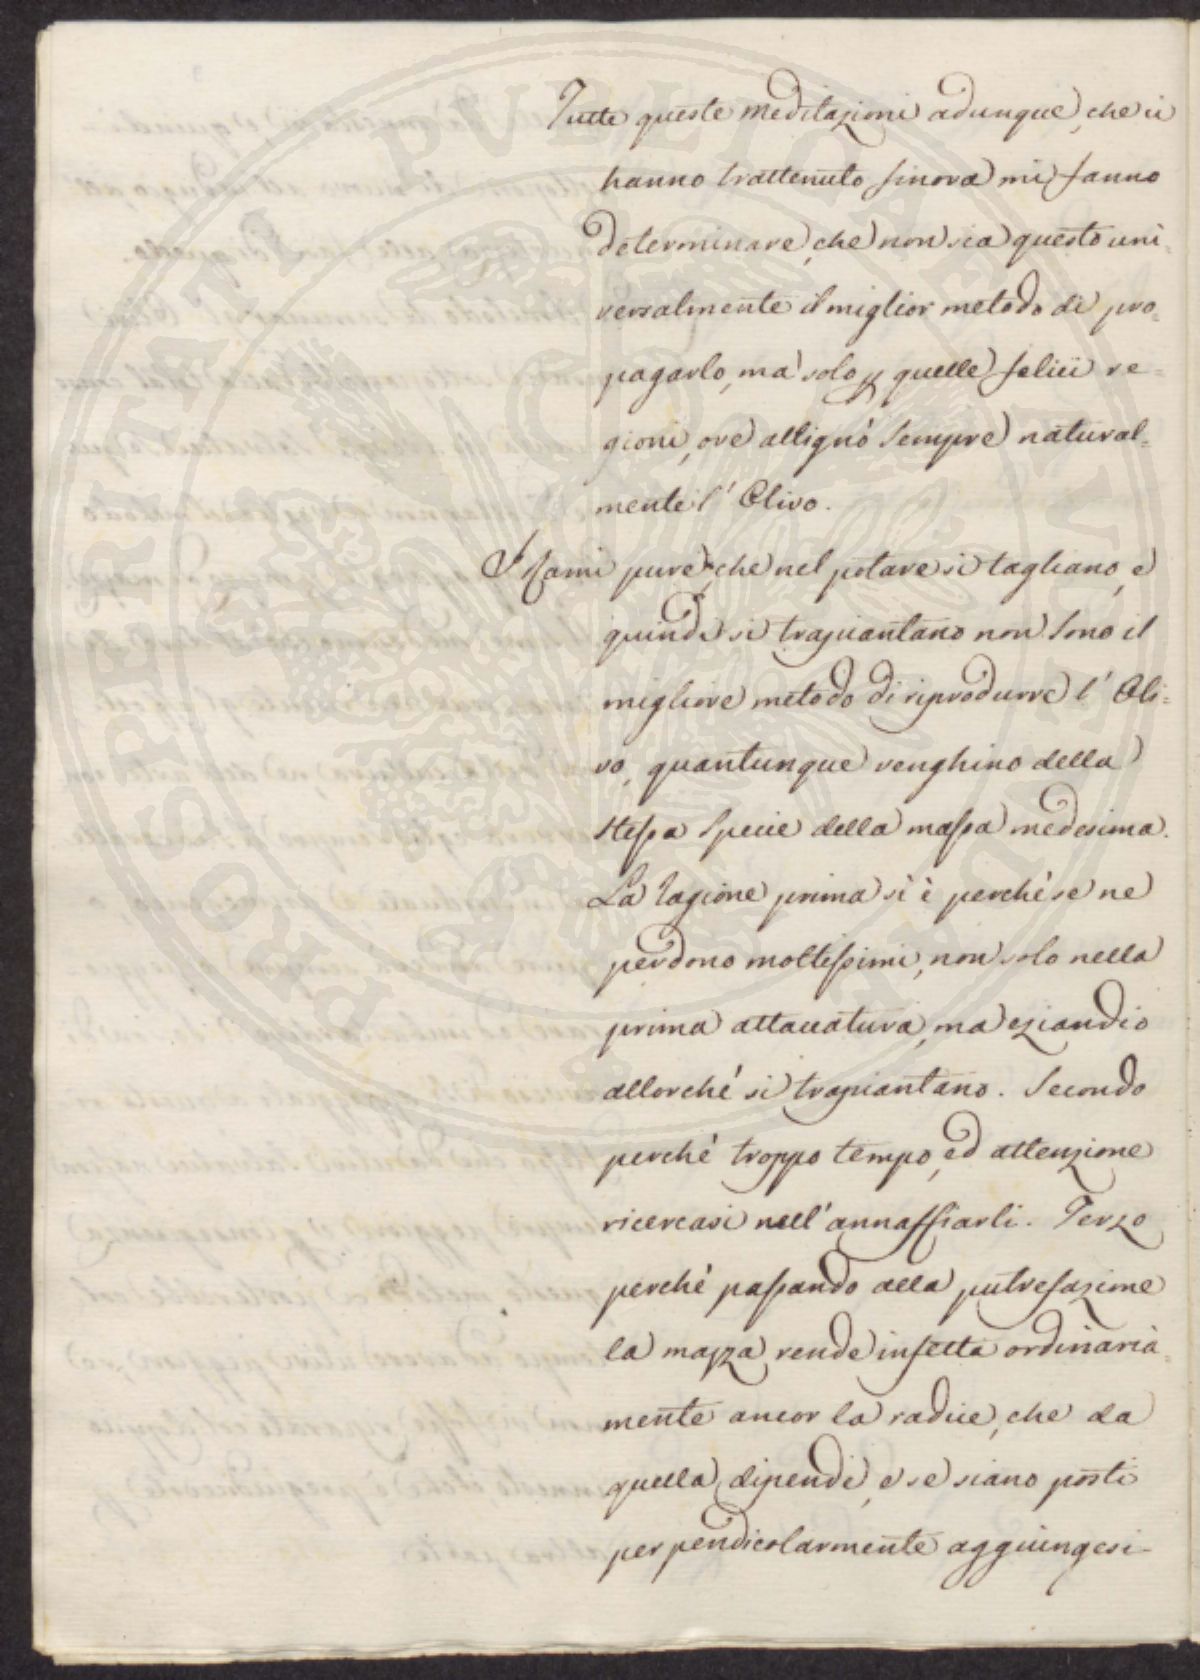 Tutte queste meditazioni adunque, che ci
hanno trattenuto finora mi fanno
determinare, che non sia questo uni-
versalmente il miglior metodo di pro-
pagarlo, ma solo p quelle felici re-
gioni, ove allignò sempre natural-
mente l' Olivo.
I Rami pure, che nel potare si tagliano, e
quindi si trapiantano non sono il
migliore metodo di riprodurre l' Oli-
vo, quantunque venghino della
stessa specie della massa medesima.
La ragione prima si è perché se ne
perdono moltissimi, non solo nella
prima attaccatura, ma eziandio
allorché si trapiantano. Secondo
perché troppo tempo, ed attenzione
ricercasi nell' annaffiarli. Terzo
perché passando alla putrefazione
la mazza rende infetta ordinaria-
mente ancor la radice, che da
quella dipende, e se siano posti
perpendicolarmente aggiungesi
PROSPERITATI PVBLICAE AVGENDAE